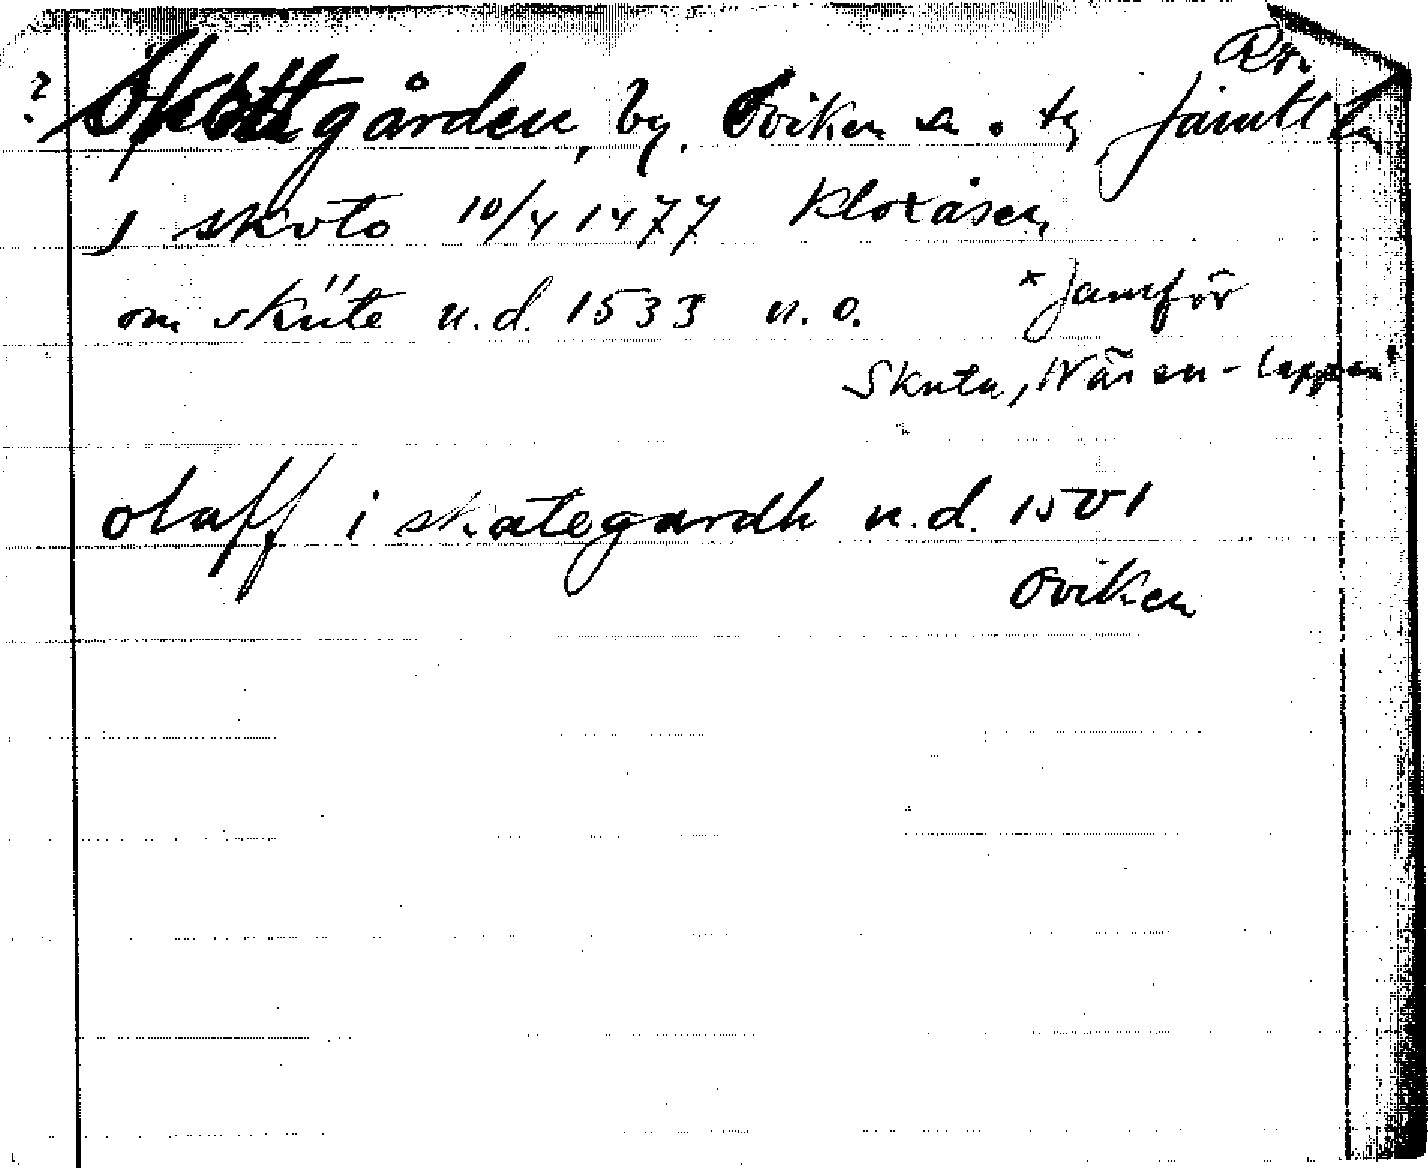 Rtn
? Skottgården, by. Oviken sn. o. tg, Jämtl. ln
J skoto 10/4 1477 Kloxåsen
om sküte u.d. 1533 n.o. * Jämför
Skuta, Näsen-lappen"
olaff i skategardh u.d. 1501
Oviken